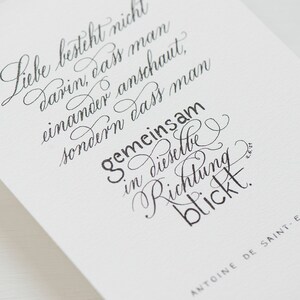 Liebe besteht nicht
darin, dass man
einander anschaut,
sondern dass man
gemeinsam
in dieselbe
Richtung
blickt.
ANTOINE DE SAINT-E